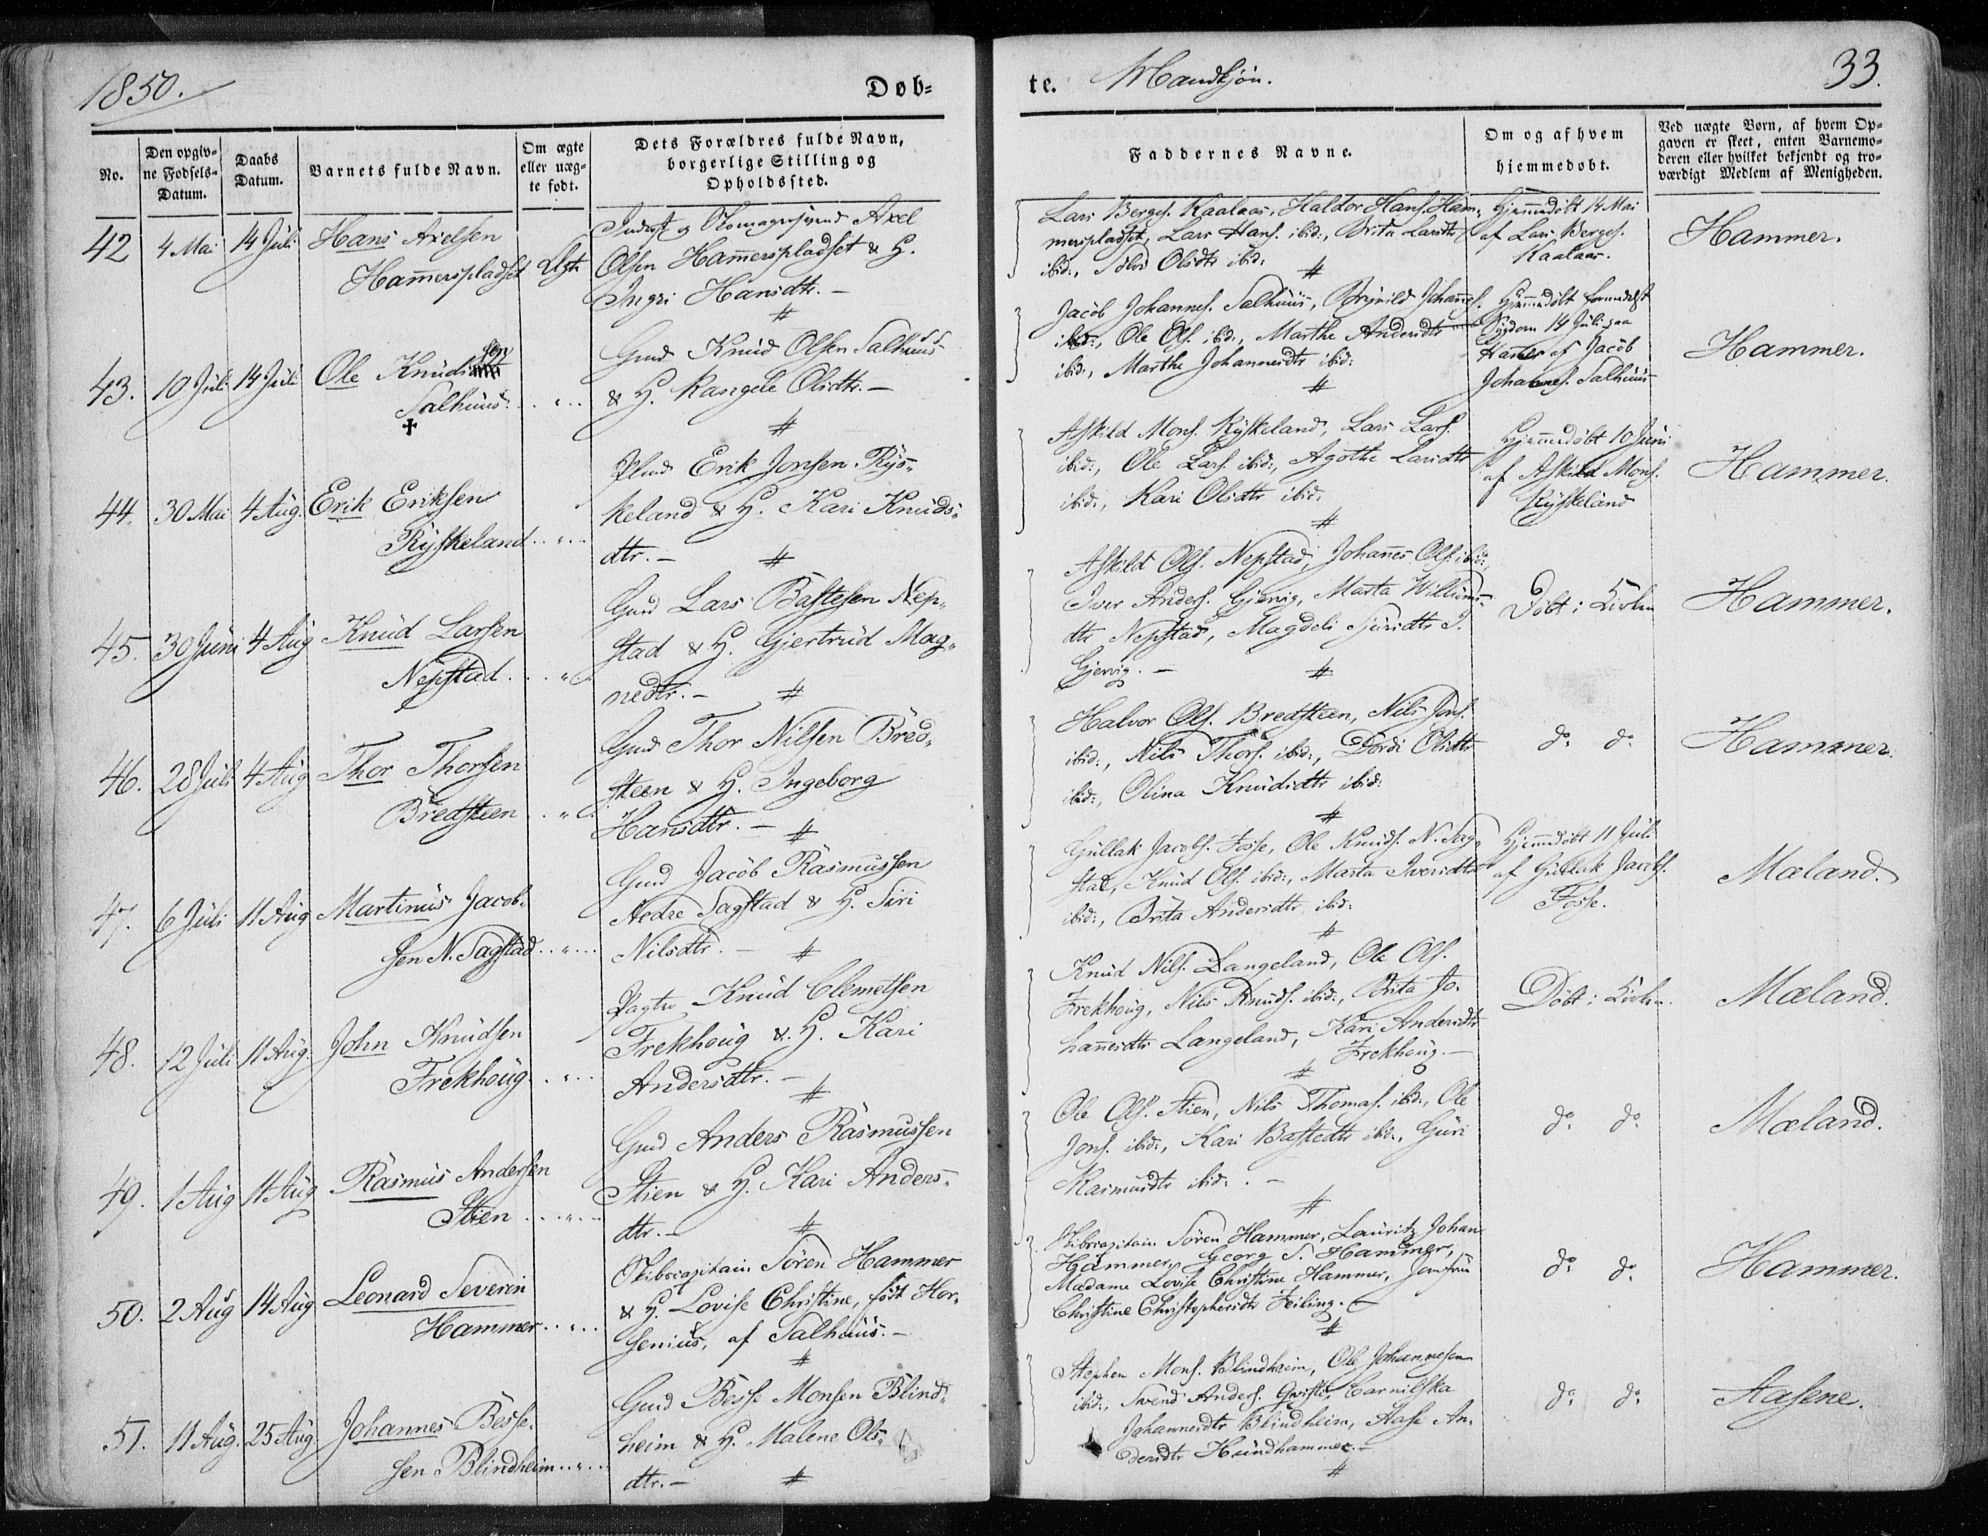 1850.
Døb=
te. Mandkjøn.
33.
No.
Den opgiv=
ne Fødsels=
Datum.
Daabs
Datum.
Barnets fulde Navn.
Om ægte
eller uæg=
te født.
Dets Forældres fulde Navn,
borgerlige Stilling og
Opholdssted.
Faddernes Navne.
Om og af hvem
hjemmedøbt.
Ved uægte Børn, af hvem Op=
gaven er skeet, enten Barnemo=
deren eller hvilket bekjendt og tro=
værdigt Medlem af Menigheden.
42 4 Mai 14 Juli Hans Axelsen
Hammerspladset Ægte
Inderst og Axel
Olsen Hammerspladset & H.
Ingri Hansdtr. —
Lars Berges. Kaalaas, Haldor Hans. Ham-
merspladset, Lars Hans. ibid:, Brita Larsdtr
ibid:, Olsdtr ibid:
Hjemmedøbt 14 Mai
af Lars Berges.
Kaalaas.
Hammer.
43. 10 Juli 14 Juli Ole Knudssen
Salhuus. „
✝
Gmd Knud Olsen Salhuus
& H. Rangele Olsdtr. —
Jacob Johannes. Salhuus, Brynild Johannes.
ibid:, Ole Ols. ibid:, Marthe Andersdtr
ibid:, Marthe Johannesdtr ibid:
Hjemmedøbt formedelst
Sygdom 14 Juli paa
Hammer af Jacob
Johannes. Salhuus
Hammer.
44. 30 Mai 4 Aug. Erik Eriksen
Rysskeland „
Erik Jonsen Rys-
keland & H. Kari Knuds-
dtr. —
Askild Mons. Rysskeland, Lars Lars.
ibid:, Ole Lars. ibid:, Agothe Larsdtr
ibid:, Kari Olsdtr ibid:
Hjemmedøbt 10 Juni
af Askild Mons.
Rysskeland
Hammer.
45. 30 Juni 4 Aug Knud Larsen
Nepstad. „
Gmd Lars Bastesen Nep-
stad & H. Gjertrud Mag-
nedtr. —
Askild Ols. Nepstad, Johannes Ols. ibid:,
Iver Anders. Gjervig, Marta Willums-
dtr Nepstad, Magdeli Siursdtr
Gjervig. —
Døbt i Kirken
Hammer.
46. 28 Juli 4 Aug Thor Thorsen
Bredsteen „
Gmd Thor Nilsen Bred-
steen & H. Ingeborg
Hansdtr. —
Halvor Ols. Bredsteen, Nils Jons.
ibid:, Nils Thors. ibid:, Dordi Olsdtr
ibid:, Olina Knudsdtr ibid:
do. do.
Hammer.
47. 6 Juli 11 Aug Martinus Jacob-
sen N. Sagstad „
Gmd Jacob Rasmussen
Nedre Sagstad & H. Siri
Nilsdtr. —
Gullak Jacobs. Fosse, Ole Knuds. N. Sag-
stad, Knud Ols. ibid:, Marta Iversdtr
ibid:, Brita Andersdtr ibid:
Hjemmedøbt 11 Juli
af Gullak Jacobs.
Fosse.
Mæland.
48. 12 Juli 11 Aug. John Knudsen
Frekhoug „
Pagter Knud Clemetsen
Frekhoug & H. Kari
Andersdtr. —
Knud Nils. Langeland, Ole Ols.
Frekhoug, Nils Knuds. ibid:, Brita Jo-
hannesdtr Langeland, Kari Andersdtr
Frekhoug. —
Døbt i Kirken.
Mæland.
49. 1 Aug 11 Aug Rasmus Andersen
Stien „
Gmd Anders Rasmussen
Stien & H. Kari Anders-
dtr. —
Ole Ols. Stien, Nils Thomas. ibid:, Ole
Jons. ibid:, Kari Bastedtr ibid:, Guri
Rasmusdtr ibid: —
do. do.
Mæland.
50. 2 Aug 14 Aug Leonard Severin
Hammer „
Skibscapitain Søren Hammer
& H. Lovise Christine, født Hor-
senius, af Salhuus. —
Skibscapitain Søren Hammer, Lauritz Johan
Hammer, Georg S. Hammer,
Madame Lovise Christine Hammer, Jomfru
Christine Christophersdtr Feiling. —
do. do.
Hammer.
51. 11 Aug. 25 Aug. Johannes Besse-
sen Blindheim „
Gmd Besse Monsen Blind-
heim & H. Malene Ols-
dtr. —
Stephen Mons. Blindheim, Ole Johannesen
ibid:, Svend Anders. Carnilska
Johannesdtr Blindheim, Aase An-
dersdtr Hundhammer. —
do. do.
Aasene.